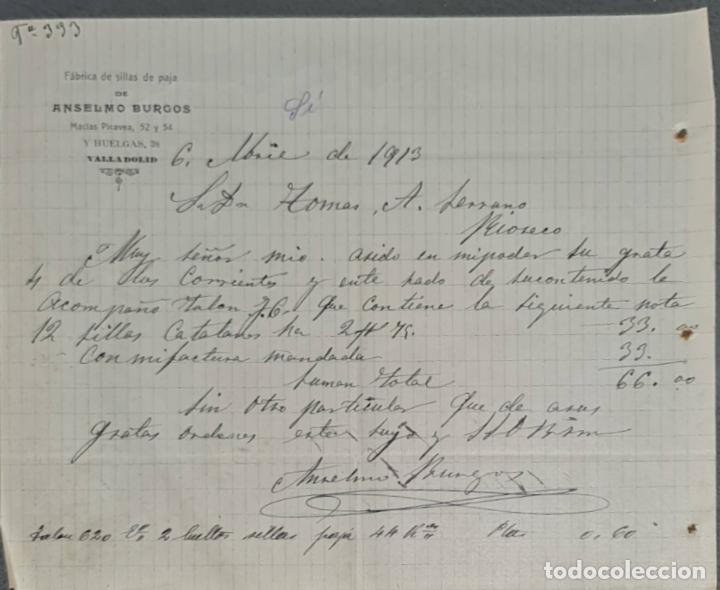 Tª 393
Fábrica de sillas de paja
DE
ANSELMO BURGOS
Macías Picavea, 52 y 54
Y HUELGAS, 28
VALLADOLID
6. de 1913
Sr Dn Tomas, A. Serrano
Rioseco
Muy señor mio. asido en mipoder su grata
4 de los corrientes y ente rado de sucontenido le
acompaño talon F.C. que contiene la siguiente nota
12 sillas Catalanas 2 75 33. 00
Con mifactura mandada 33.
Suman total 66.00
Sin otro particular que de asus
gratas ordenes suyo y
Anselmo Burgos
Talon 620 2 bultos sillas paja 44 Ks Ptas 0,60
todocoleccion.net